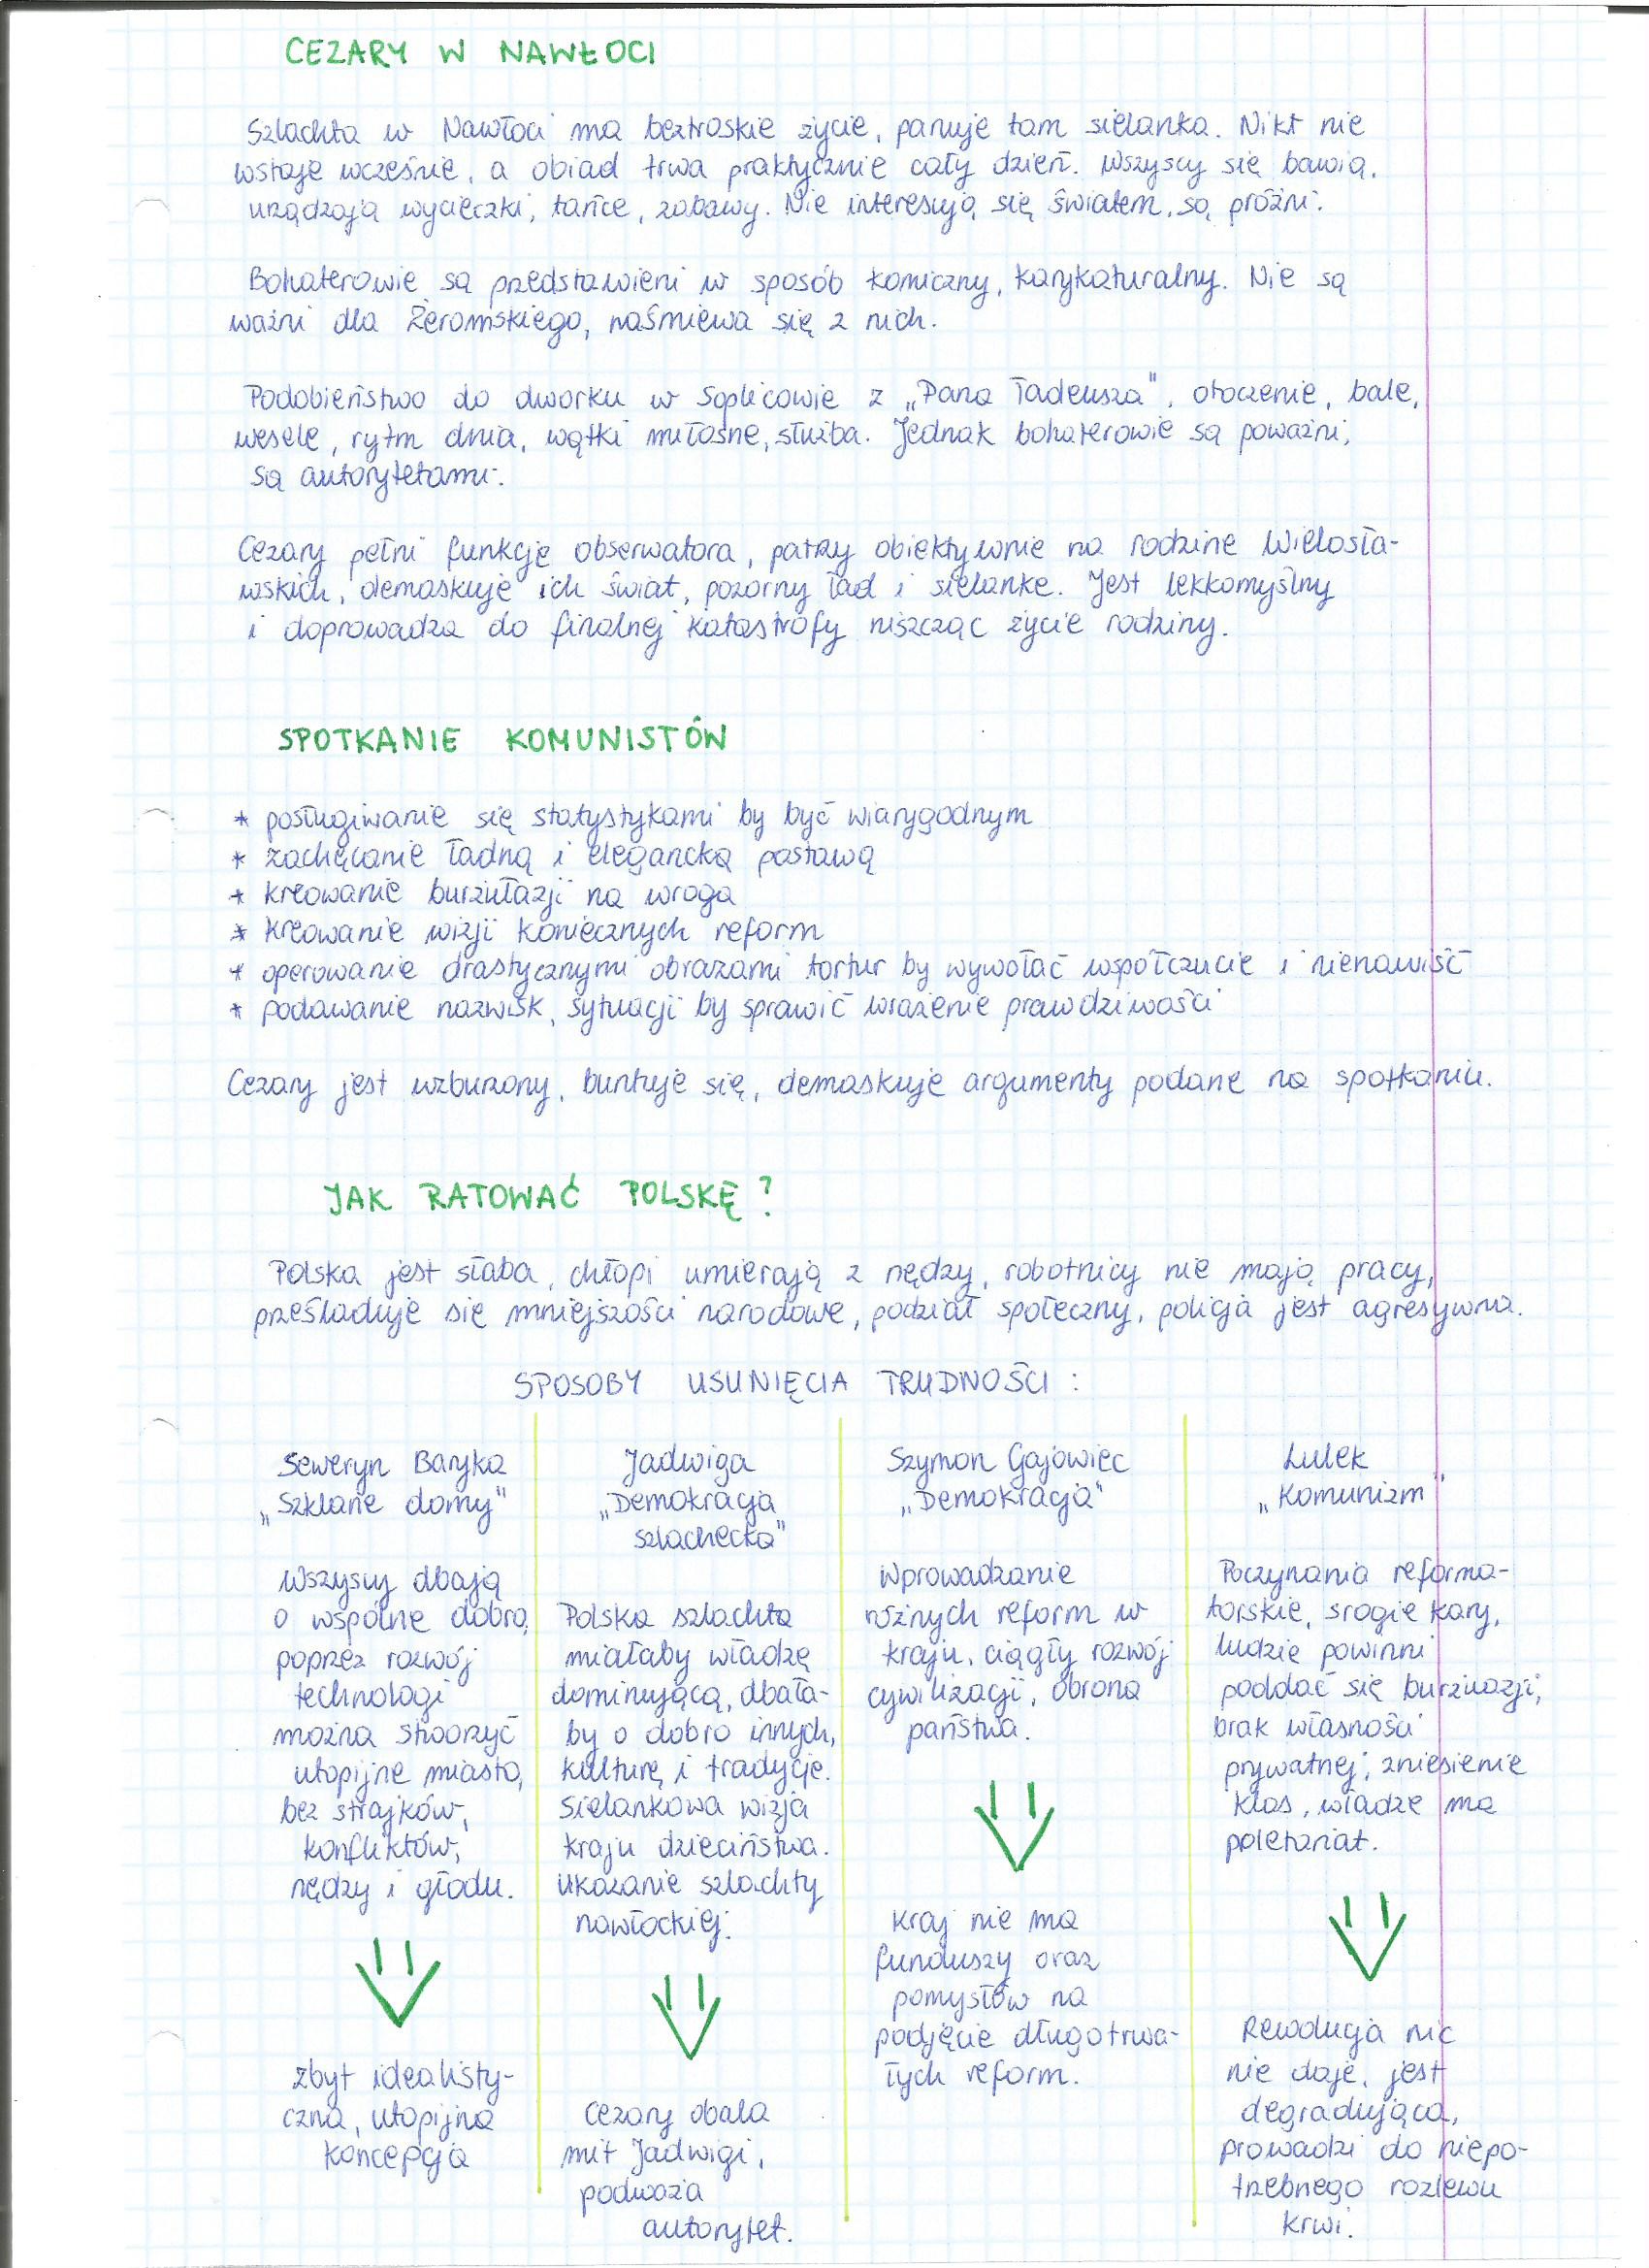 CEZARY W NAWŁOCI
Szlachta w Nawłoci ma beztroskie życie, panuje tam sielanka. Nikt nie
wstaje wcześnie, a obiad trwa praktycznie cały dzień. Wszyscy się bawią,
urządzają wycieczki, tańce, zabawy. Nie interesują się światem, są próżni.
Bohaterowie są przedstawieni w sposób komiczny, karykaturalny. Nie są
ważni dla Żeromskiego, naśmiewa się z nich.
Podobieństwo do dworku w Soplicowie z „Pana Tadeusza", otoczenie, bale,
wesele, rytm dnia, wątki miłosne, służba. Jednak bohaterowie są poważni,
są autorytetami.
Cezary pełni funkcję obserwatora, patrzy obiektywnie na rodzinę Wielosła-
wskich, demaskuje ich świat, pozorny ład i sielankę. Jest lekkomyślny
i doprowadza do finalnej katastrofy niszcząc życie rodziny.
SPOTKANIE KOMUNISTÓW
* posługiwanie się statystykami by być wiarygodnym
* zachęcanie ładną i elegancką postawą
* kreowanie burżułazji na wroga
* kreowanie wizji koniecznych reform
* operowanie drastycznymi obrazami tortur by wywołać współczucie i nienawiść
* podawanie nazwisk, sytuacji by sprawić wrażenie prawdziwości
Cezary jest wzburzony, buntuje się, demaskuje argumenty podane na spotkaniu.
JAK RATOWAĆ POLSKĘ?
Polska jest słaba, chłopi umierają z nędzy, robotnicy nie mają pracy,
prześladuje się mniejszości narodowe, podział społeczny, policja jest agresywna.
SPOSOBY USUNIĘCIA TRUDNOŚCI :
Seweryn Baryka
„Szklane domy"
Wszyscy dbają
o wspólne dobro,
poprzez rozwój
technologi
można stworzyć
utopijne miasto,
bez strajków,
konfliktów,
nędzy i głodu.
zbyt idealisty-
czna, utopijna
koncepcja
Jadwiga
„Demokracja
szlachecka"
Polska szlachta
miałaby władzę
dominującą, dbała-
by o dobro innych,
kulturę i tradycje.
Sielankowa wizja
kraju dzieciństwa.
Ukazanie szlachty
nawłockiej.
Cezary obala
mit Jadwigi,
podważa
autorytet.
Szymon Gajowiec
„Demokracja"
Wprowadzanie
różnych reform w
kraju, ciągły rozwój
cywilizacji, obrona
państwa.
Kraj nie ma
funduszy oraz
pomysłów na
podjęcie długotrwa-
łych reform.
Lulek
„Komunizm"
Poczynania reforma-
torskie, srogie kary,
ludzie powinni
poddać się burżuazji,
brak własności
prywatnej, zniesienie
klas, władzę ma
poletariat.
Rewolucja nic
nie daje, jest
degradująca,
prowadzi do niepo-
trzebnego rozlewu
krwi.